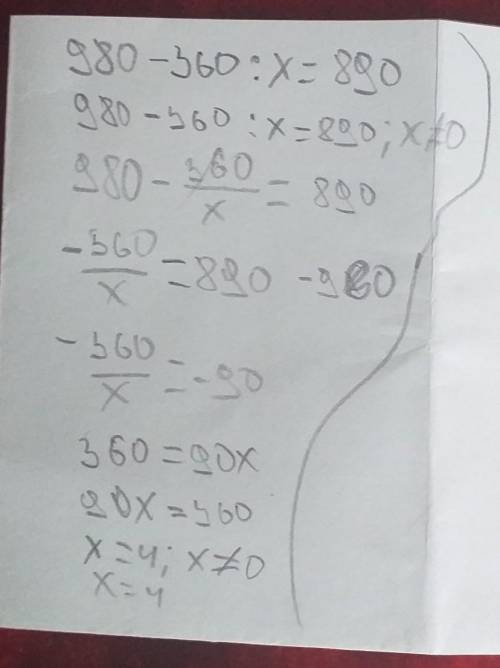 980 - 360 : x = 890
980 - 360 : x = 890; x ≠ 0
980 - 360/x = 890
-360/x = 890 - 980
-360/x = -90
360 = 90x
90x = 360
x = 4; x ≠ 0
x = 4